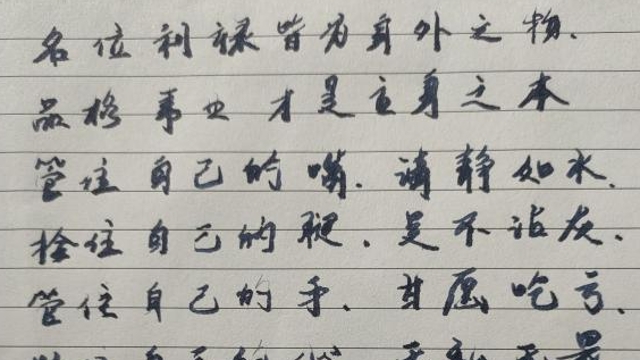 名位利禄皆为身外之物.
品格事业 才是立身之本
管住自己的嘴.清静如水.
拴住自己的腿.足不沾灰.
管住自己的手.甘愿吃亏.
住自己的